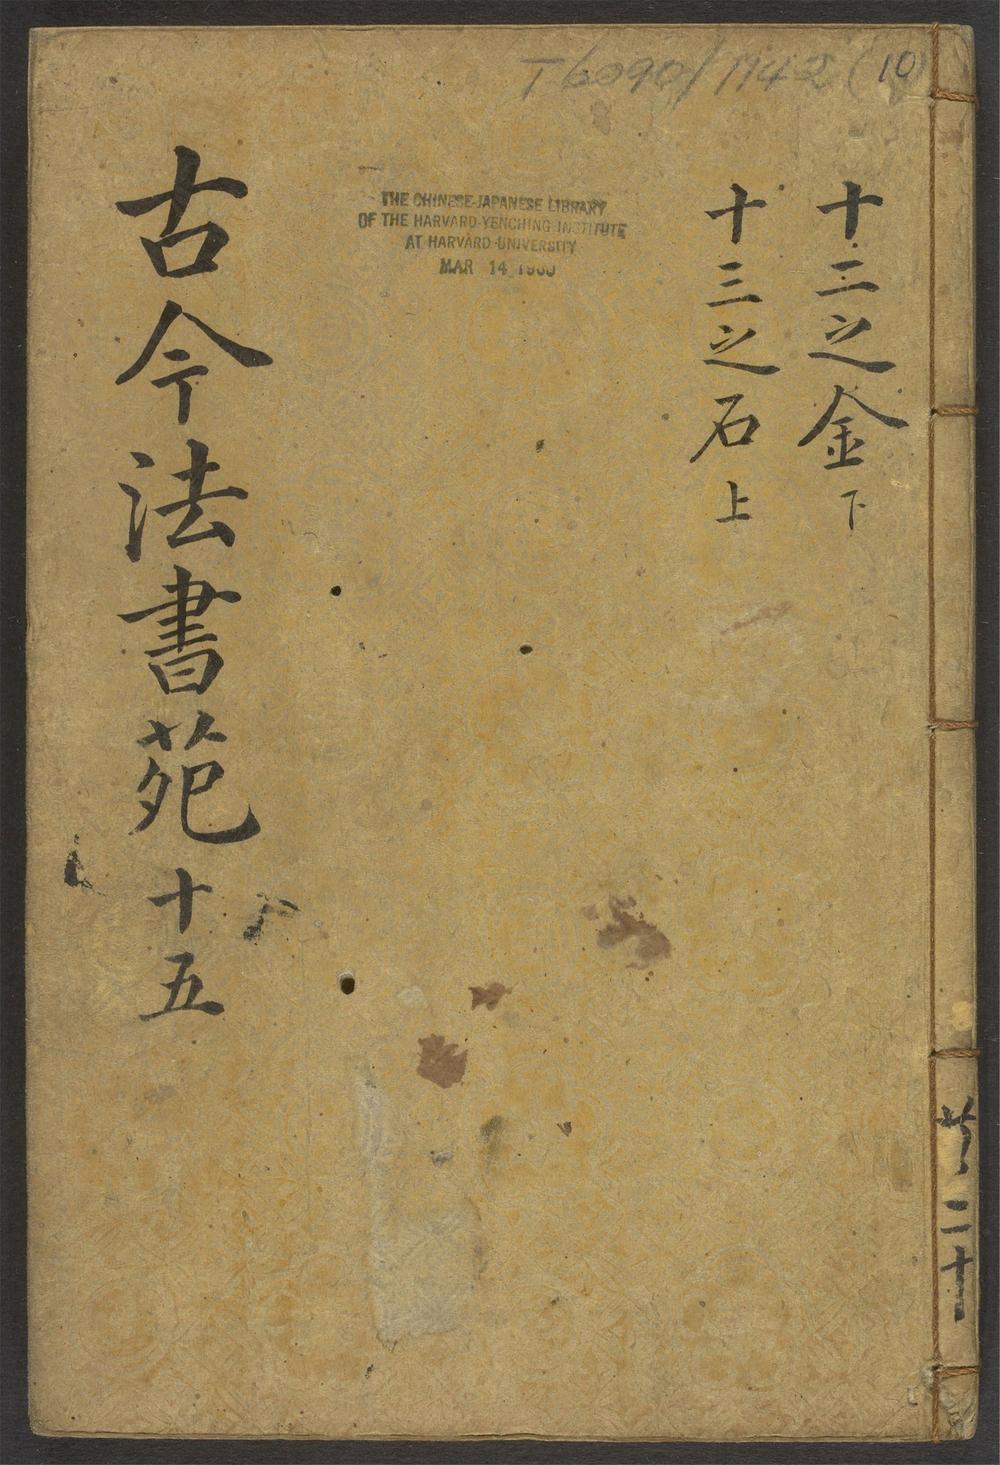 T 6090/1142 (10)
十二之金下
十三之石上
THE CHINESE-JAPANESE LIBRARY
OF THE HARVARD-YENCHING INSTITUTE
AT HARVARD UNIVERSITY
MAR 14 1960
古今法書苑十五
共二十